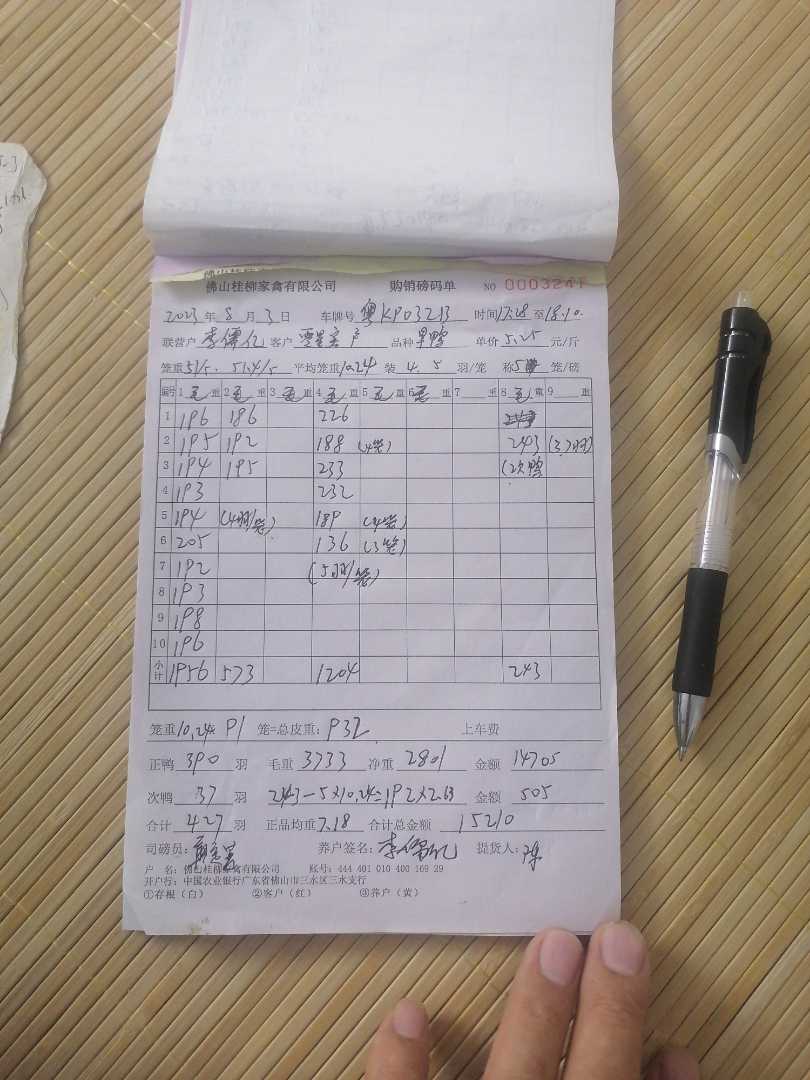 佛山桂柳家禽有限公司 购销磅码单 NO 0003241
2023 年 8 月 3 日 车牌号 粤KP03213 时间 17:28 至 18:10.
联营户 李儒亿 客户 品种 单价 5.25 元/斤
笼重 51/5. 51.4/5 平均笼重 10.24 装 4.5 羽/笼 称 5 笼/磅
编号 1 毛 重 2 毛 重 3 毛 重 4 毛 重 5 毛 重 6 毛 重 7 重 8 毛 重 9 重
1 196 186 226
2 195 192 188 (4笼) 243 (37羽)
3 194 195 233 (次鸭
4 193 232
5 194 (4羽/笼) 189 (4笼)
6 205 136 (3笼)
7 192 (5羽/笼)
8 193
9 198
10 196
小计 1956 573 1204 243
笼重 10.24 × 91 笼=总皮重: 932 上车费
正鸭 390 羽 毛重 3733 净重 2801 金额 14705
次鸭 37 羽 243-5×10.24=192×2.63 金额 505
合计 427 羽 正品均重 7.18 合计总金额 15210
司磅员: 养户签名: 李儒亿 提货人:
户 名: 佛山桂柳家禽有限公司 账号: 444 401 010 400 169 29
开户行: 中国农业银行广东省佛山市三水区三水支行
①存根(白) ②客户(红) ③养户(黄)